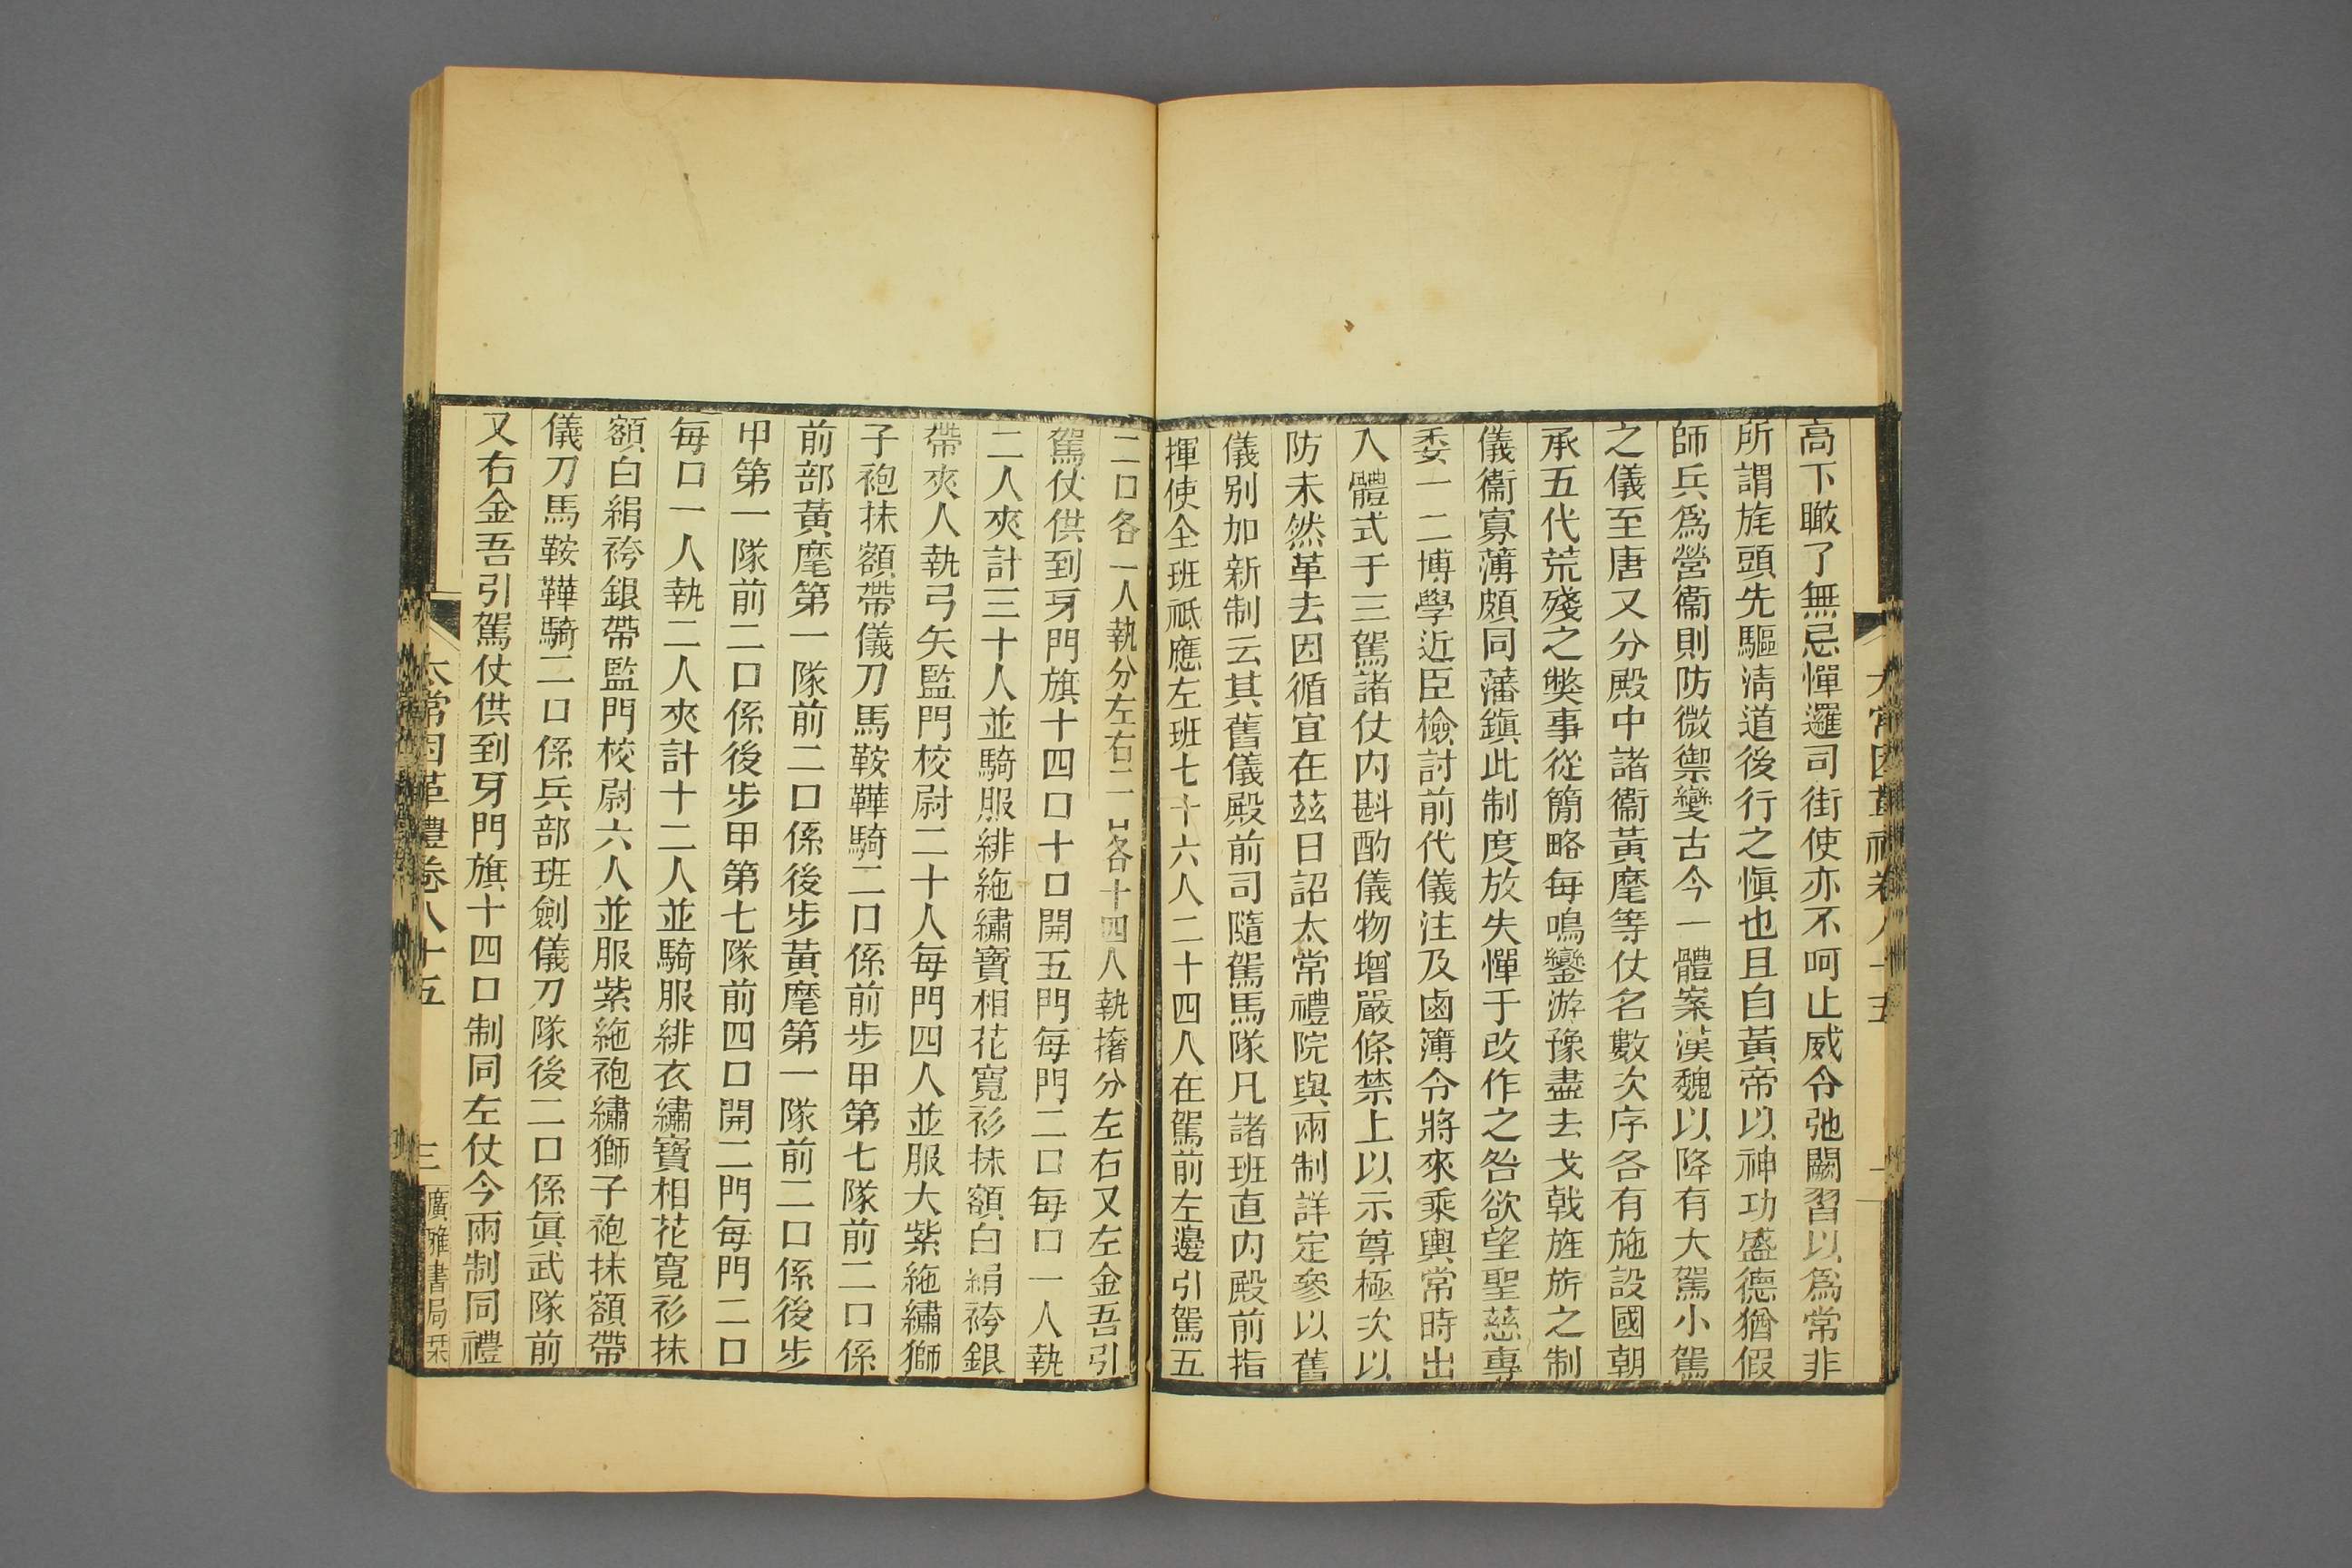 高下瞰了無忌憚邏司街使亦不呵止威令弛闕習以爲常非
所謂旄頭先驅淸道後行之愼也且自黃帝以神功盛德猶假
師兵爲營衞則防微禦變古今一體案漢魏以降有大駕小駕
之儀至唐又分殿中諸衞黃麾等仗名數次序各有施設國朝
承五代荒殘之獘事從簡略每鳴鑾游豫盡去戈戟旌旂之制
儀衞寡薄頗同藩鎭此制度放失憚于改作之咎欲望聖慈專
委一二博學近臣檢討前代儀注及鹵簿令將來乘輿常時出
入體式于三駕諸仗內斟酌儀物增嚴條禁上以示尊極次以
防未然革去因循宜在茲日詔太常禮院與兩制詳定參以舊
儀别加新制云其舊儀殿前司隨駕馬隊凡諸班直內殿前指
揮使全班祗應左班七十六人二十四人在駕前左邊引駕五
二口各一人執分左右二口各十四人執㩉分左右又左金吾引
駕仗供到牙門旗十四口十口開五門每門二口每口一人執
二人夾計三十人並騎服緋絁繡寶相花寬衫抹額白絹袴銀
帶夾人執弓矢監門校尉二十人每門四人並服大紫絁繡獅
子袍抹額帶儀刀馬鞍鞾騎二口係前步甲第七隊前二口係
前部黃麾第一隊前二口係後步黃麾第一隊前二口係後步
甲第一隊前二口係後步甲第七隊前四口開二門每門二口
每口一人執二人夾計十二人並騎服緋衣繡寶相花寬衫抹
額白絹袴銀帶監門校尉六人並服紫絁袍繡獅子袍抹額帶
儀刀馬鞍鞾騎二口係兵部班劍儀刀隊後二口係眞武隊前
又右金吾引駕仗供到牙門旗十四口制同左仗今兩制同禮
太常因革禮卷八十五
三
廣雅書局栞